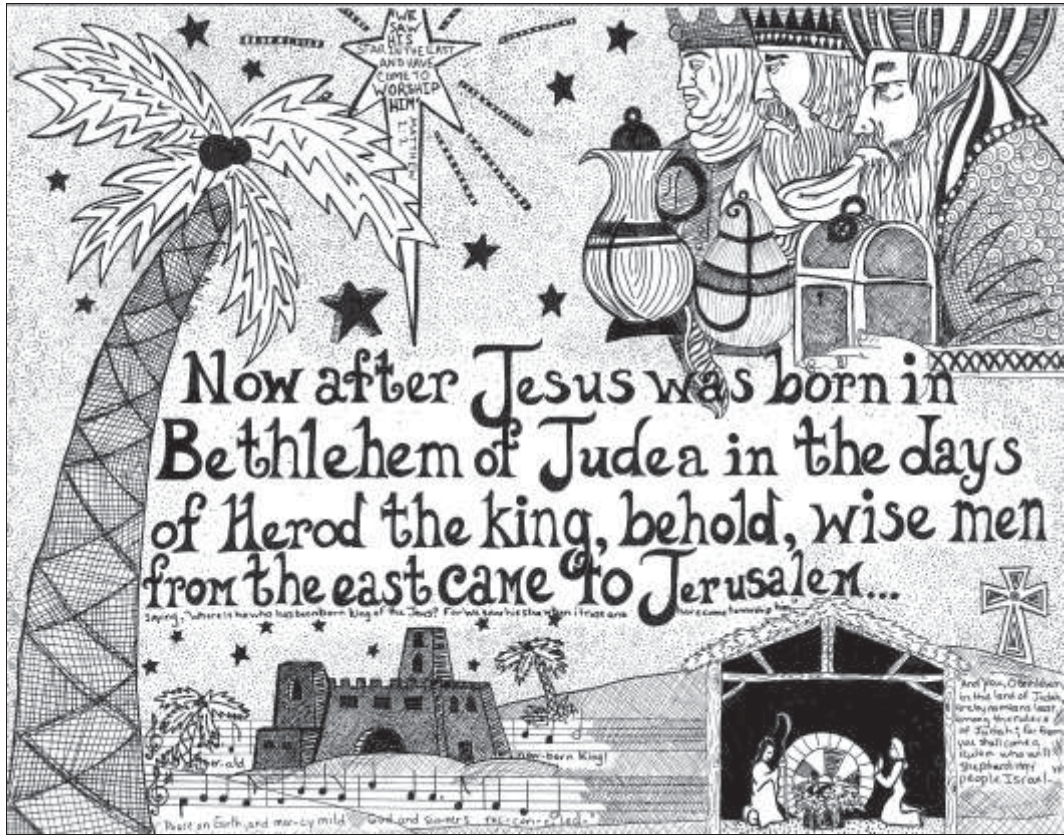 "WE
SAW
HIS
STAR IN THE EAST
AND HAVE
COME TO
WORSHIP
HIM"
MATTHEW 2:2
Now after Jesus was born in
Bethlehem of Judea in the days
of Herod the king, behold, wise men
from the east came to Jerusalem...
Saying, "Where is he who has been born King of the Jews? For we saw his star when it rose and have come to worship him."
new-born King!
"Peace on Earth, and mer-cy mild God and sinners rec-con-ciled."
"And you, O Bethlehem
in the land of Judah,
are by no means least
among the rulers
of Judah; for from
you shall come a
ruler who will
shepherd my
people Israel."